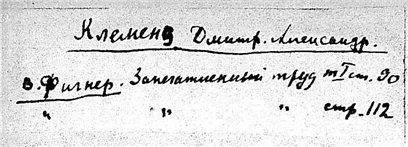 Клеменц Дмитр. Александр.
В. Фигнер. Запечатленный труд т I ст. 90
" " " стр. 112